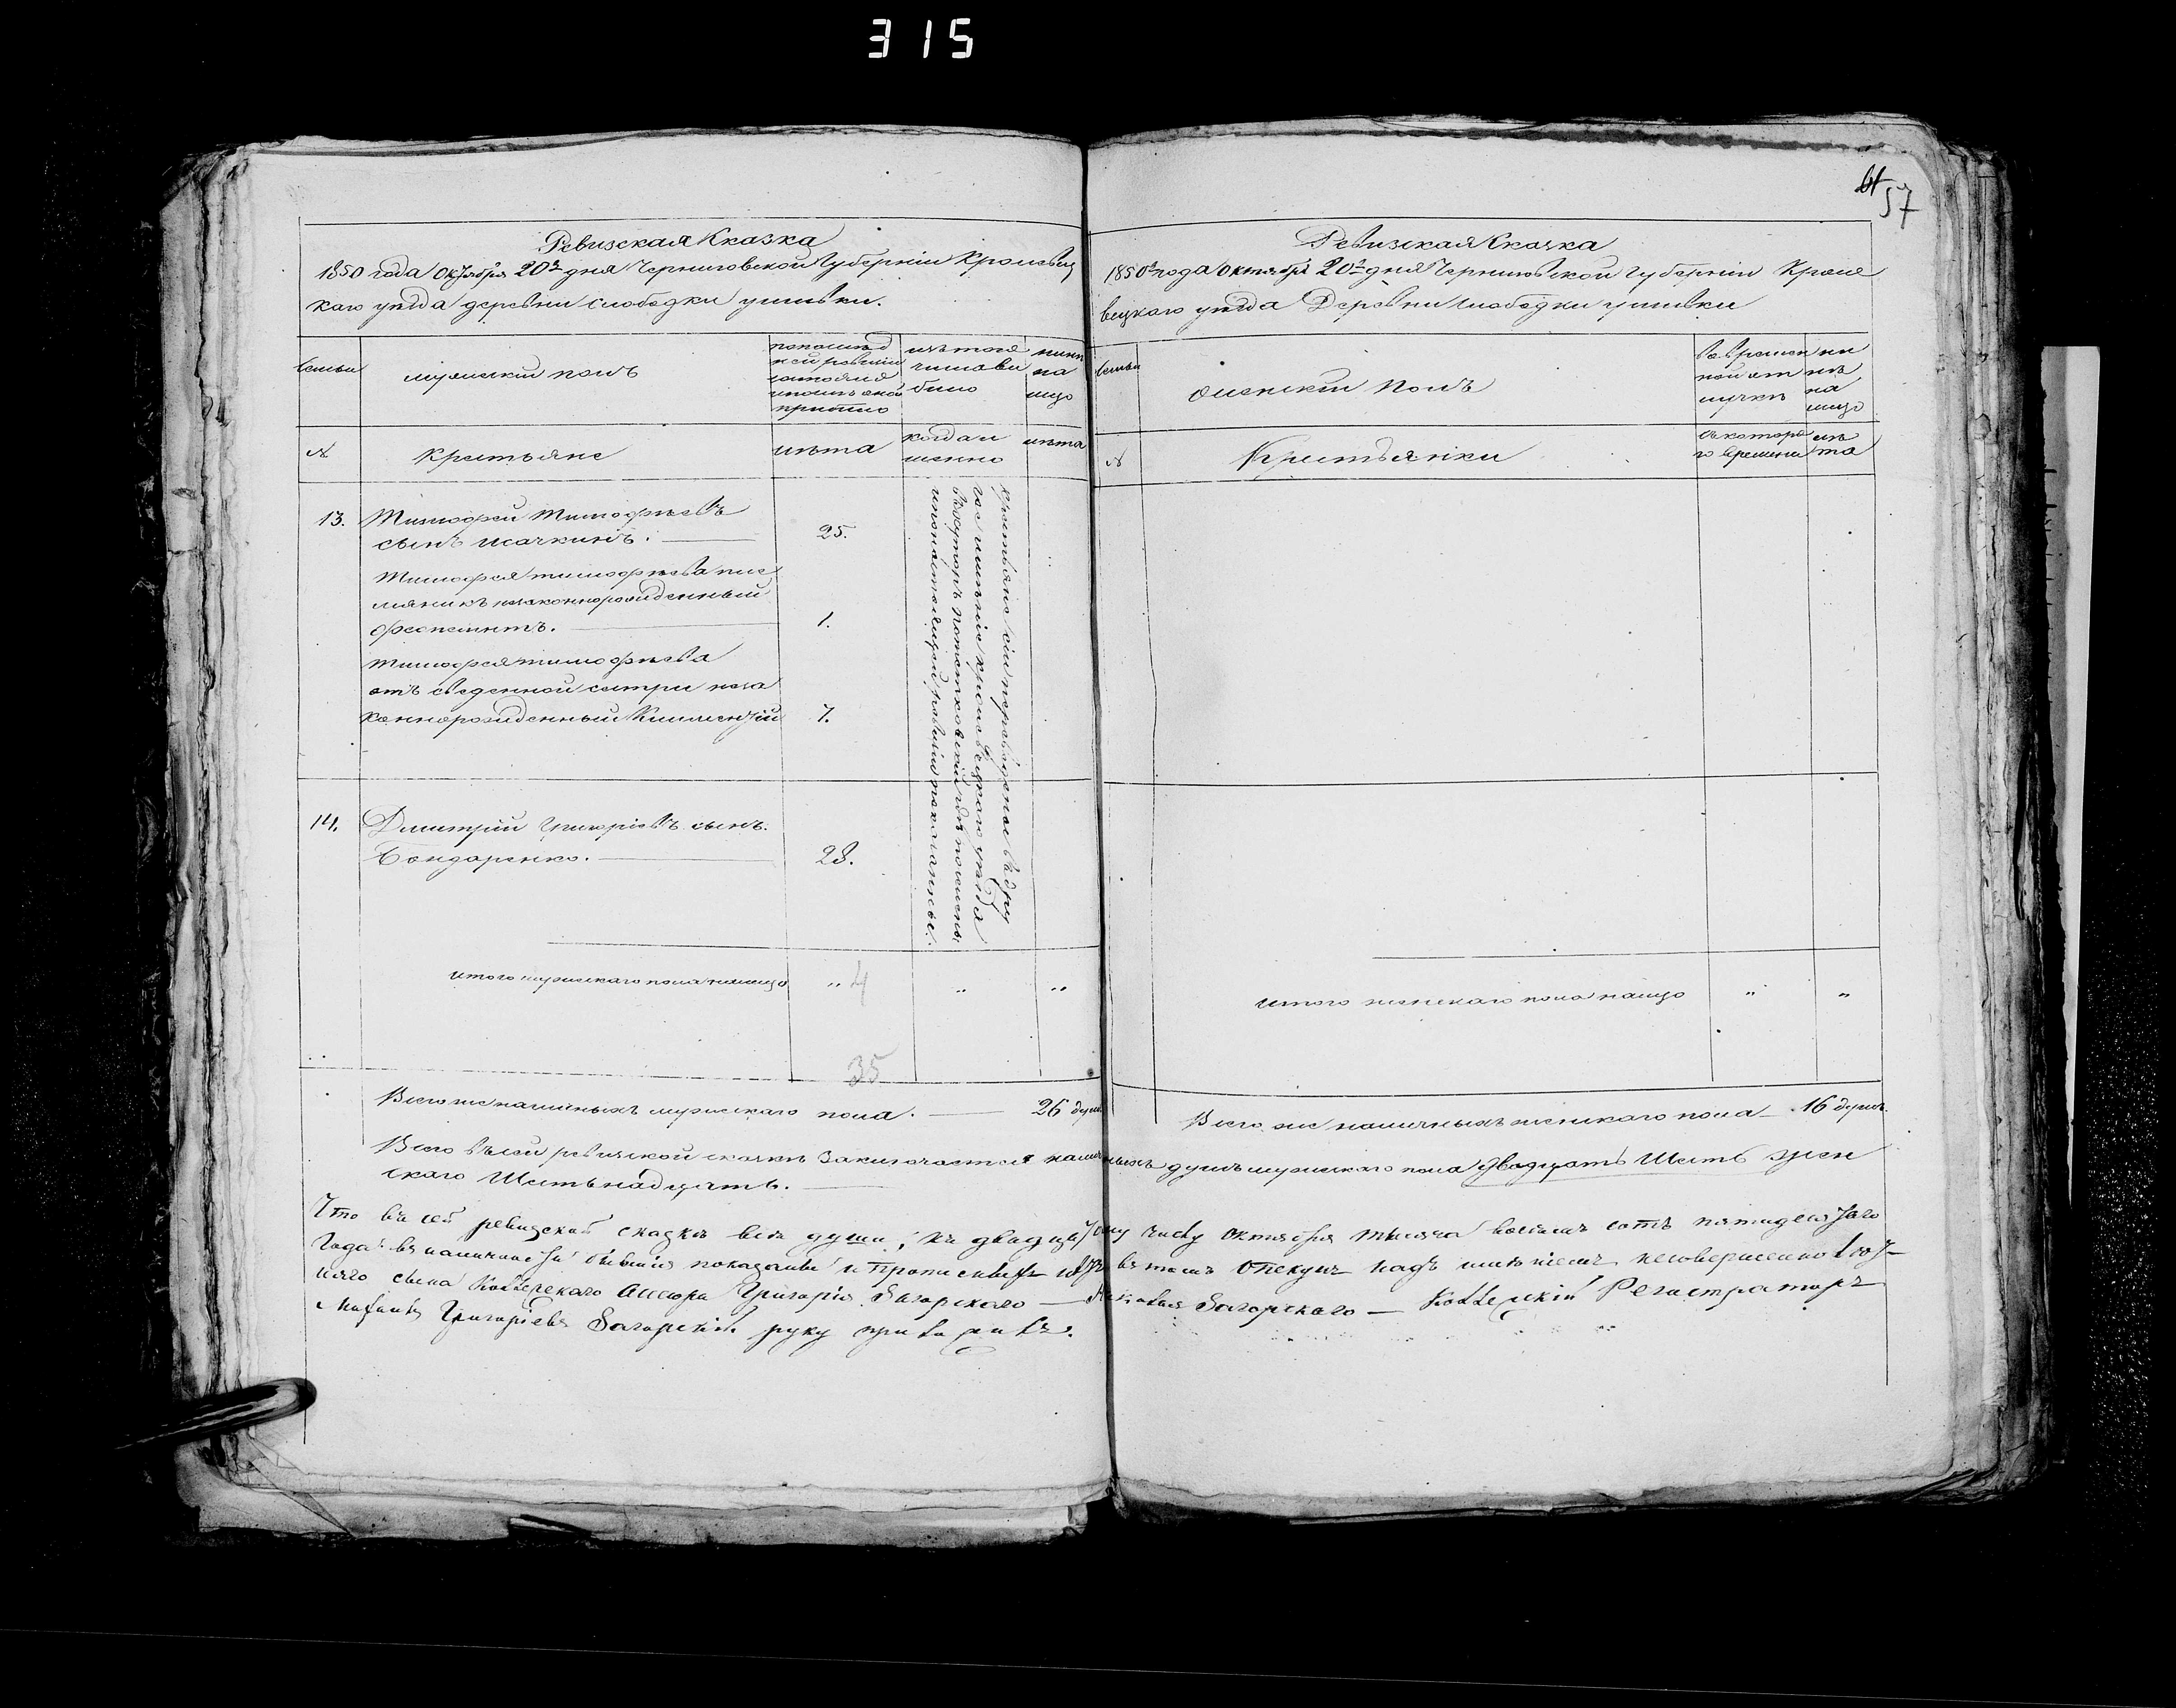 315
61
57
Ревизская Сказка
1850 года Октября 20го дня Черниговской Губерніи Кролевец
каго уезда деревни слободки
Семьи
мужескій полъ
по послѣд
ней ревизіи
состояло
и послѣ оной
прибыло
изъ того
числа вы
было
нынѣ
на
лицо
№
Крестьяне
лѣта
когда и
менно
лѣта
13.
Тимофей Тимофѣевъ
сынъ Исачкинъ.
25.
Тимофея Тимофѣева пле
мяникъ незаконнорожденный
1.
Тимофея Тимофѣева
отъ сведенной сестры неза
коннорожденный Климентій
7.
крестьяне сіи переведенные въ дру
гое имѣніе Кролевецкаго уезда
въ хуторъ гдѣ помѣщены
и по настоящей ревизіи показанные.
14.
Дмитрій Григоріевъ сынъ.
Бондаренко.
28.
итого мужескаго пола налицо
„ 4
„
„
35
Всего же наличныхъ мужескаго пола. 26 душ
Ревизская Сказка
1850го года октября 20го дня Черниговской губерніи Кроле
вецкаго уезда Деревни слободки
Семьи
женскій полъ
во времен
ной от
лучкѣ
ны
нѣ
на
лицо
№
Крестьянки
съ которо
го времени
лѣ
та
итого женскаго пола налицо
„
„
Всего же наличныхъ женскаго пола 16 душъ.
Всего въ сей ревизской сказкѣ заключается наличныхъ душъ мужескаго пола двадцать шесть жен
скаго Шестьнадцать.
Что въ сей ревизской сказкѣ всѣ души, къ двадцатому числу Октября тысяча восемь сотъ пятидесятаго
Года въ наличности бывшія показаны и прописныхъ нѣтъ въ томъ Опекунъ надъ имѣніемъ несовершеннолѣт-
няго сына Коллежскаго Ассесора Григорія Загорскаго — Николая Загорскаго — Коллежскій Регистраторъ
Григоріевъ Загорскій руку приложилъ.